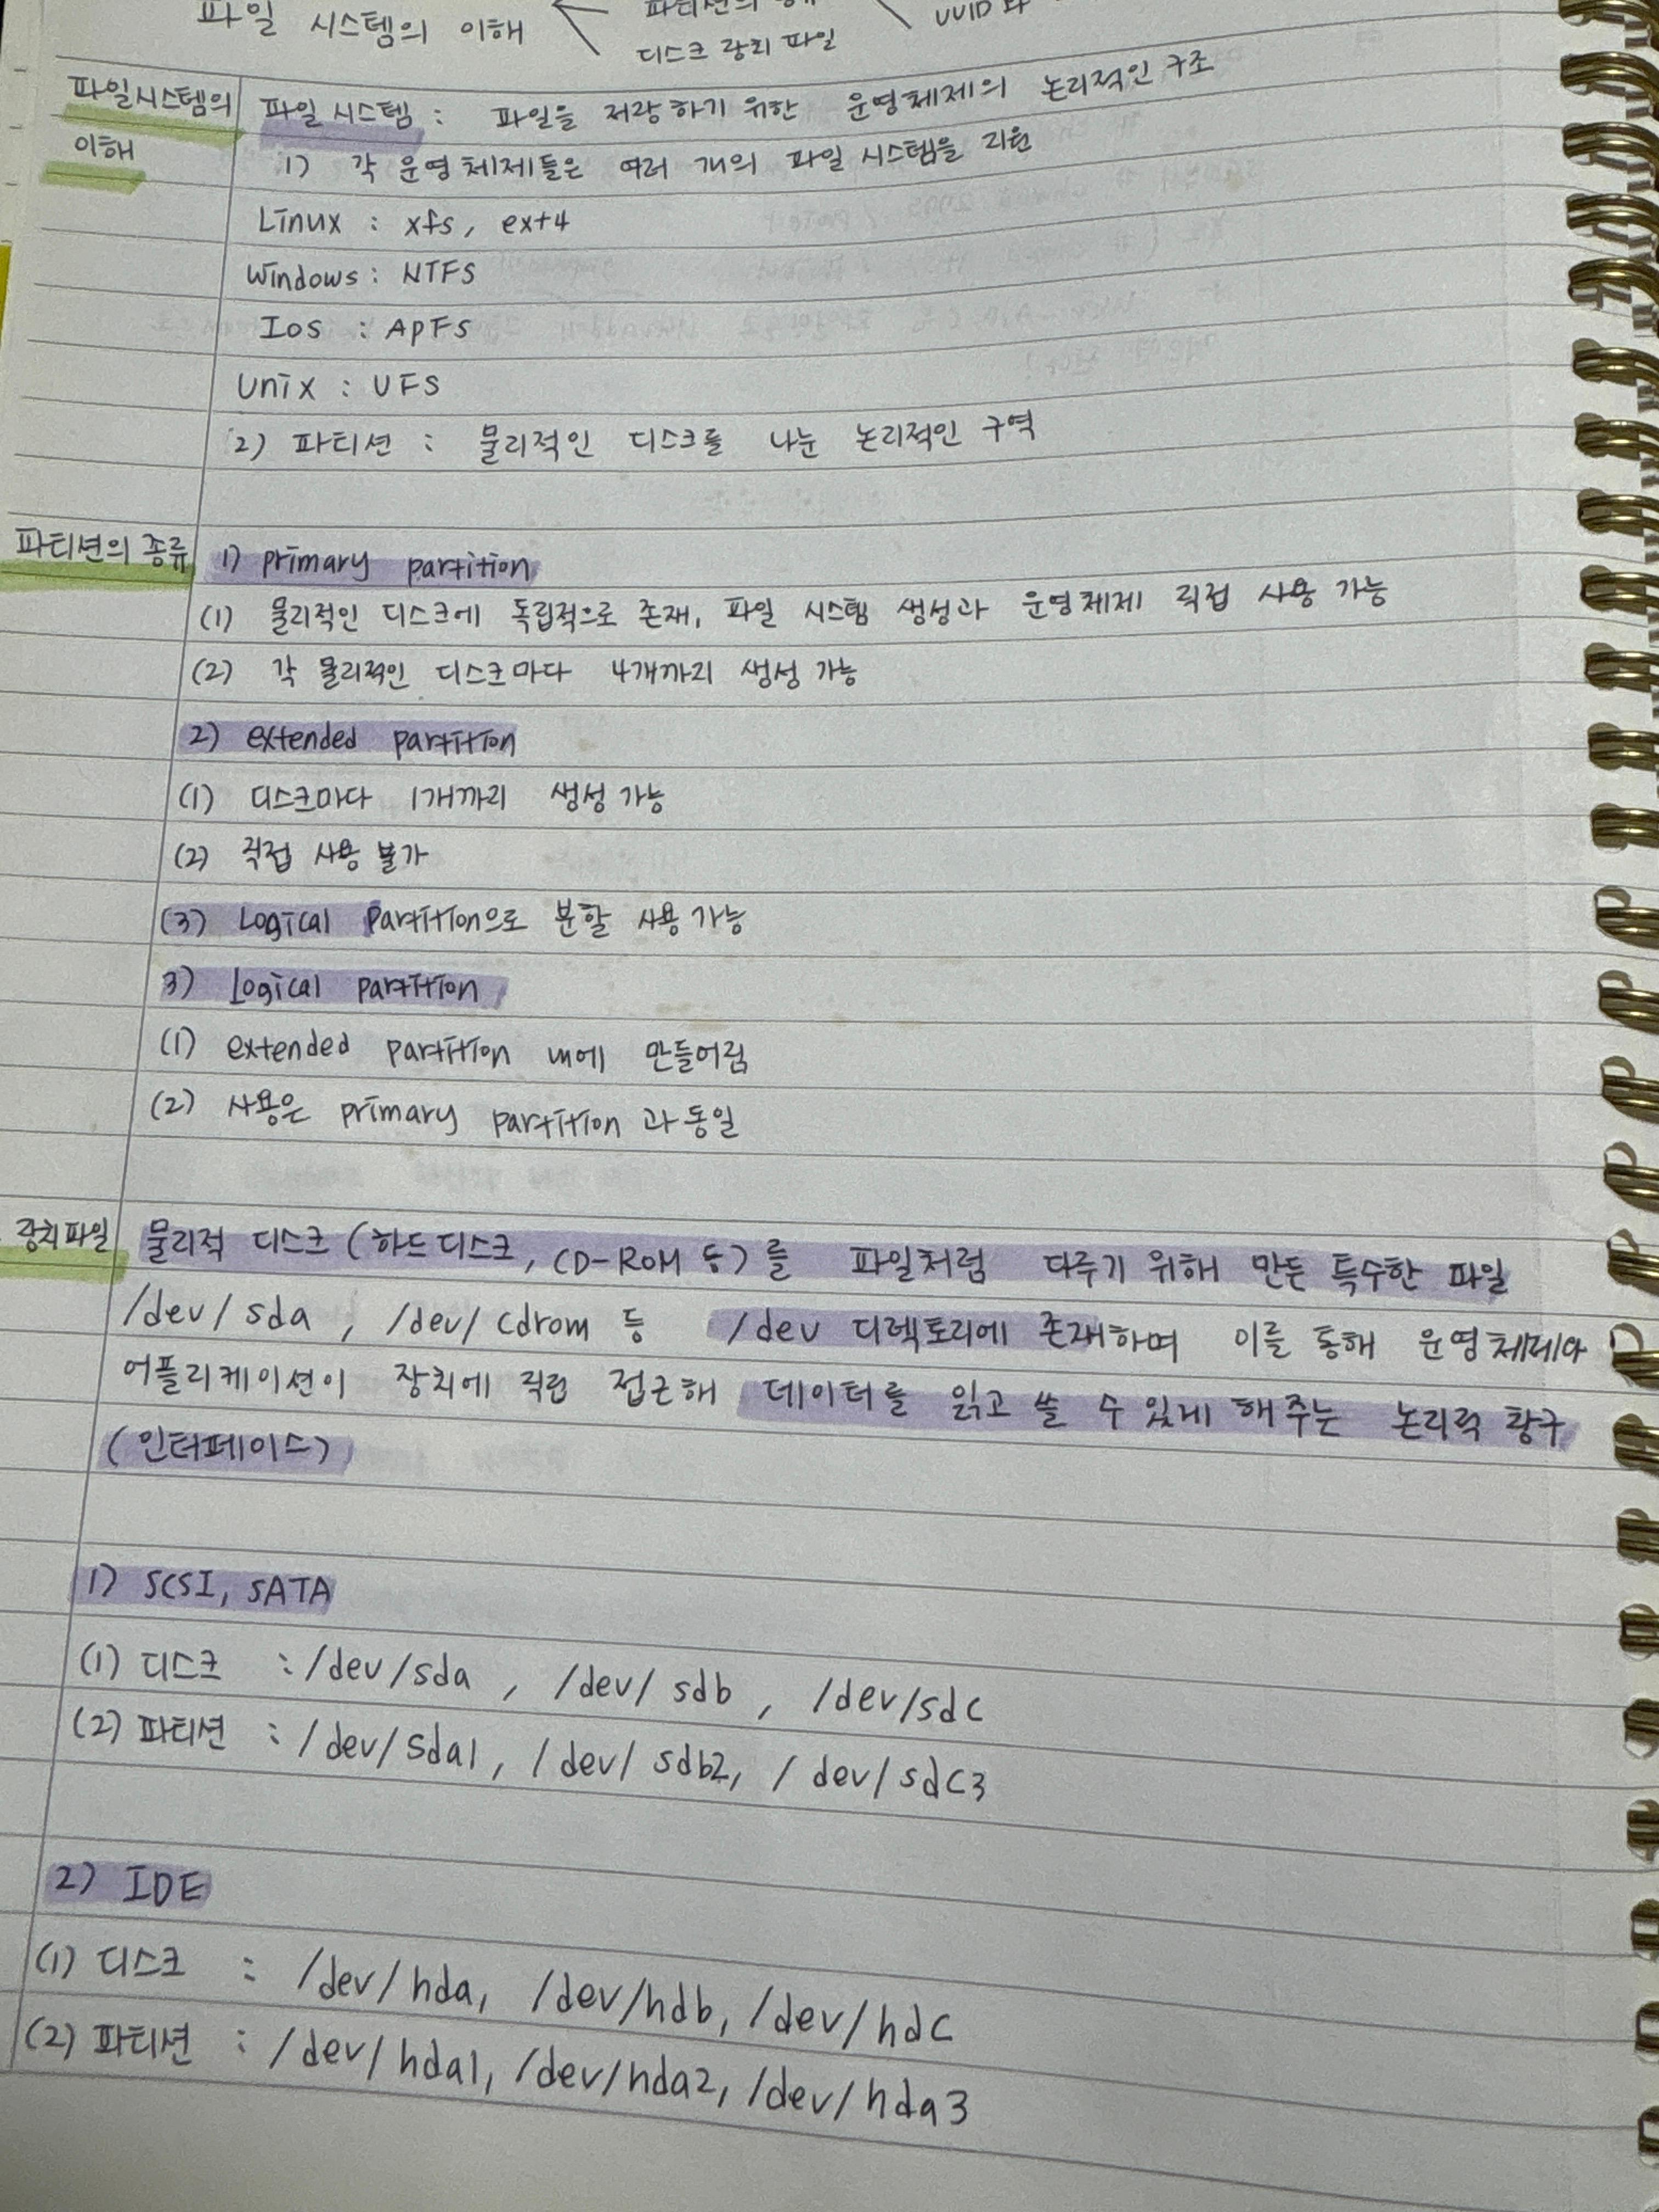 파일 시스템의 이해
디스크 장치 파일
UUID 와
파일시스템의 이해
파일 시스템 : 파일을 저장하기 위한 운영체제의 논리적인 구조
1) 각 운영체제들은 여러 개의 파일 시스템을 지원
Linux : xfs, ext4
Windows : NTFS
Ios : APFS
Unix : UFS
2) 파티션 : 물리적인 디스크를 나눈 논리적인 구역
파티션의 종류
1) primary partition
(1) 물리적인 디스크에 독립적으로 존재, 파일 시스템 생성과 운영체제 직접 사용 가능
(2) 각 물리적인 디스크마다 4개까지 생성 가능
2) extended partition
(1) 디스크마다 1개까지 생성 가능
(2) 직접 사용 불가
(3) Logical partition으로 분할 사용 가능
3) Logical partition
(1) extended partition 내에 만들어짐
(2) 사용은 primary partition 과 동일
장치파일
물리적 디스크 (하드디스크, CD-ROM 등)를 파일처럼 다루기 위해 만든 특수한 파일
/dev/sda , /dev/cdrom 등 /dev 디렉토리에 존재하며 이를 통해 운영체제와
어플리케이션이 장치에 직접 접근해 데이터를 읽고 쓸 수 있게 해주는 논리적 창구
(인터페이스)
1) SCSI, SATA
(1) 디스크 : /dev/sda , /dev/sdb , /dev/sdc
(2) 파티션 : /dev/sda1, /dev/sdb2, /dev/sdc3
2) IDE
(1) 디스크 : /dev/hda, /dev/hdb, /dev/hdc
(2) 파티션 : /dev/hda1, /dev/hda2, /dev/hda3